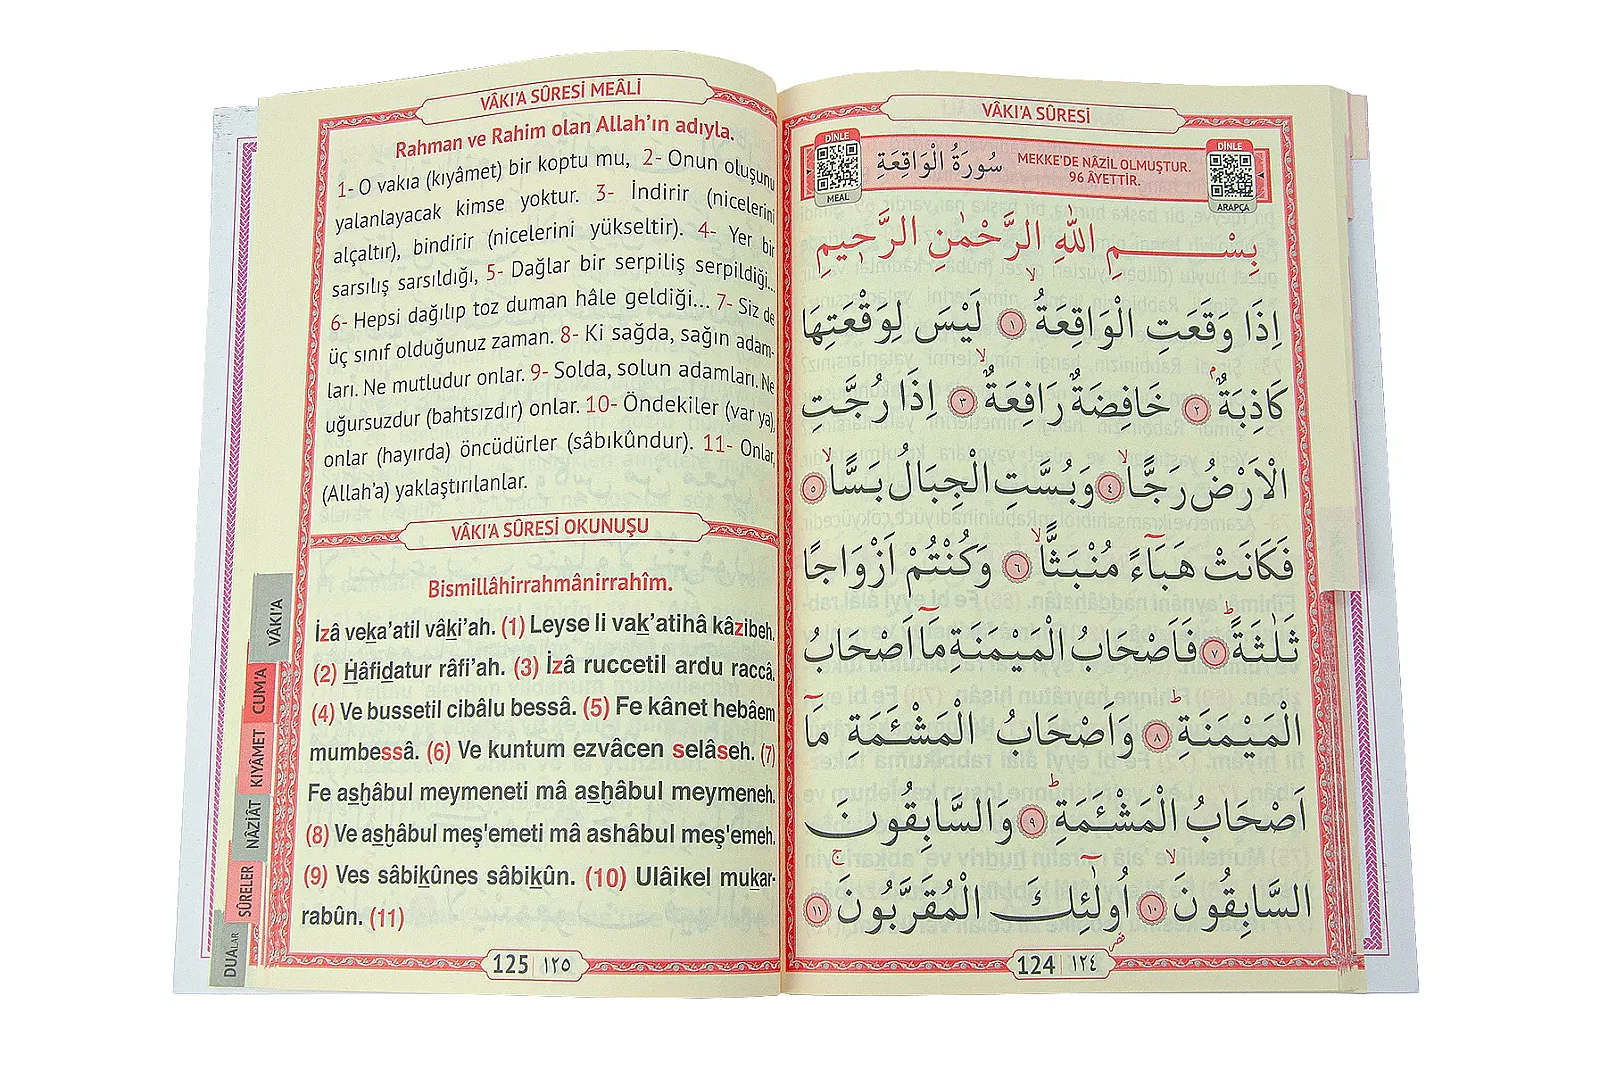 VÂKI'A SÛRESİ MEÂLİ
Rahman ve Rahim olan Allah'ın adıyla.
1- O vakıa (kıyâmet) bir koptu mu, 2- Onun oluşunu
yalanlayacak kimse yoktur. 3- İndirir (nicelerini
alçaltır), bindirir (nicelerini yükseltir). 4- Yer bir
sarsılış sarsıldığı, 5- Dağlar bir serpiliş serpildiği...
6- Hepsi dağılıp toz duman hâle geldiği... 7- Siz de
üç sınıf olduğunuz zaman. 8- Ki sağda, sağın adam-
ları. Ne mutludur onlar. 9- Solda, solun adamları. Ne
uğursuzdur (bahtsızdır) onlar. 10- Öndekiler (var ya),
onlar (hayırda) öncüdürler (sâbıkûndur). 11- Onlar,
(Allah'a) yaklaştırılanlar.
VÂKI'A SÛRESİ OKUNUŞU
Bismillâhirrahmânirrahîm.
İzâ veka'atil vâki'ah. (1) Leyse li vak'atihâ kâzibeh.
(2) Hâfidatur râfi'ah. (3) İzâ ruccetil ardu raccâ.
(4) Ve bussetil cibâlu bessâ. (5) Fe kânet hebâem
mumbessâ. (6) Ve kuntum ezvâcen selâseh. (7)
Fe ashâbul meymeneti mâ ashâbul meymeneh.
(8) Ve ashâbul meş'emeti mâ ashâbul meş'emeh.
(9) Ves sâbikûnes sâbikûn. (10) Ulâikel mukar-
rabûn. (11)
VÂKI'A
CUM'A
KIYÂMET
NÂZİÂT
SÛRELER
DUALAR
125 ١٢٥
VÂKI'A SÛRESİ
DİNLE
MEAL
سُورَةُ الْوَاقِعَةِ
MEKKE'DE NÂZİL OLMUŞTUR.
96 ÂYETTİR.
DİNLE
ARAPÇA
بِسْمِ اللّٰهِ الرَّحْمٰنِ الرَّحِيمِ
اِذَا وَقَعَتِ الْوَاقِعَةُ ۙ ١ لَيْسَ لِوَقْعَتِهَا
كَاذِبَةٌ ۢ ٢ خَافِضَةٌ رَافِعَةٌ ۙ ٣ اِذَا رُجَّتِ
الْاَرْضُ رَجًّا ۙ ٤ وَبُسَّتِ الْجِبَالُ بَسًّا ۙ ٥
فَكَانَتْ هَبَٓاءً مُنْبَثًّا ۙ ٦ وَكُنْتُمْ اَزْوَاجًا
ثَلٰثَةً ۜ ٧ فَاَصْحَابُ الْمَيْمَنَةِ مَٓا اَصْحَابُ
الْمَيْمَنَةِ ۜ ٨ وَاَصْحَابُ الْمَشْـَٔمَةِ مَٓا
اَصْحَابُ الْمَشْـَٔمَةِ ۜ ٩ وَالسَّابِقُونَ
السَّابِقُونَ ۙ ١٠ اُولٰٓئِكَ الْمُقَرَّبُونَ ۚ ١١
124 ١٢٤